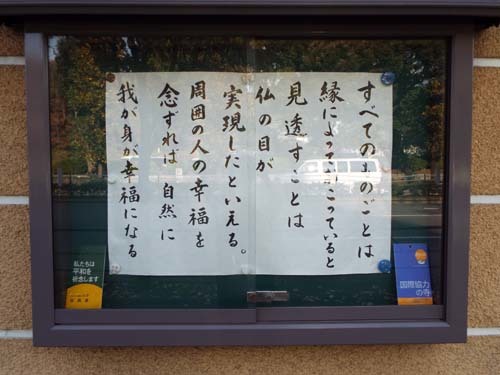 すべてのものごとは
縁によっておこっていると
見透すことは
仏の目が
実現したといえる。
周囲の人の幸福を
念ずれば 自然に
我が身が幸福になる
私たちは
平和を
祈念します
国際協力
の寺